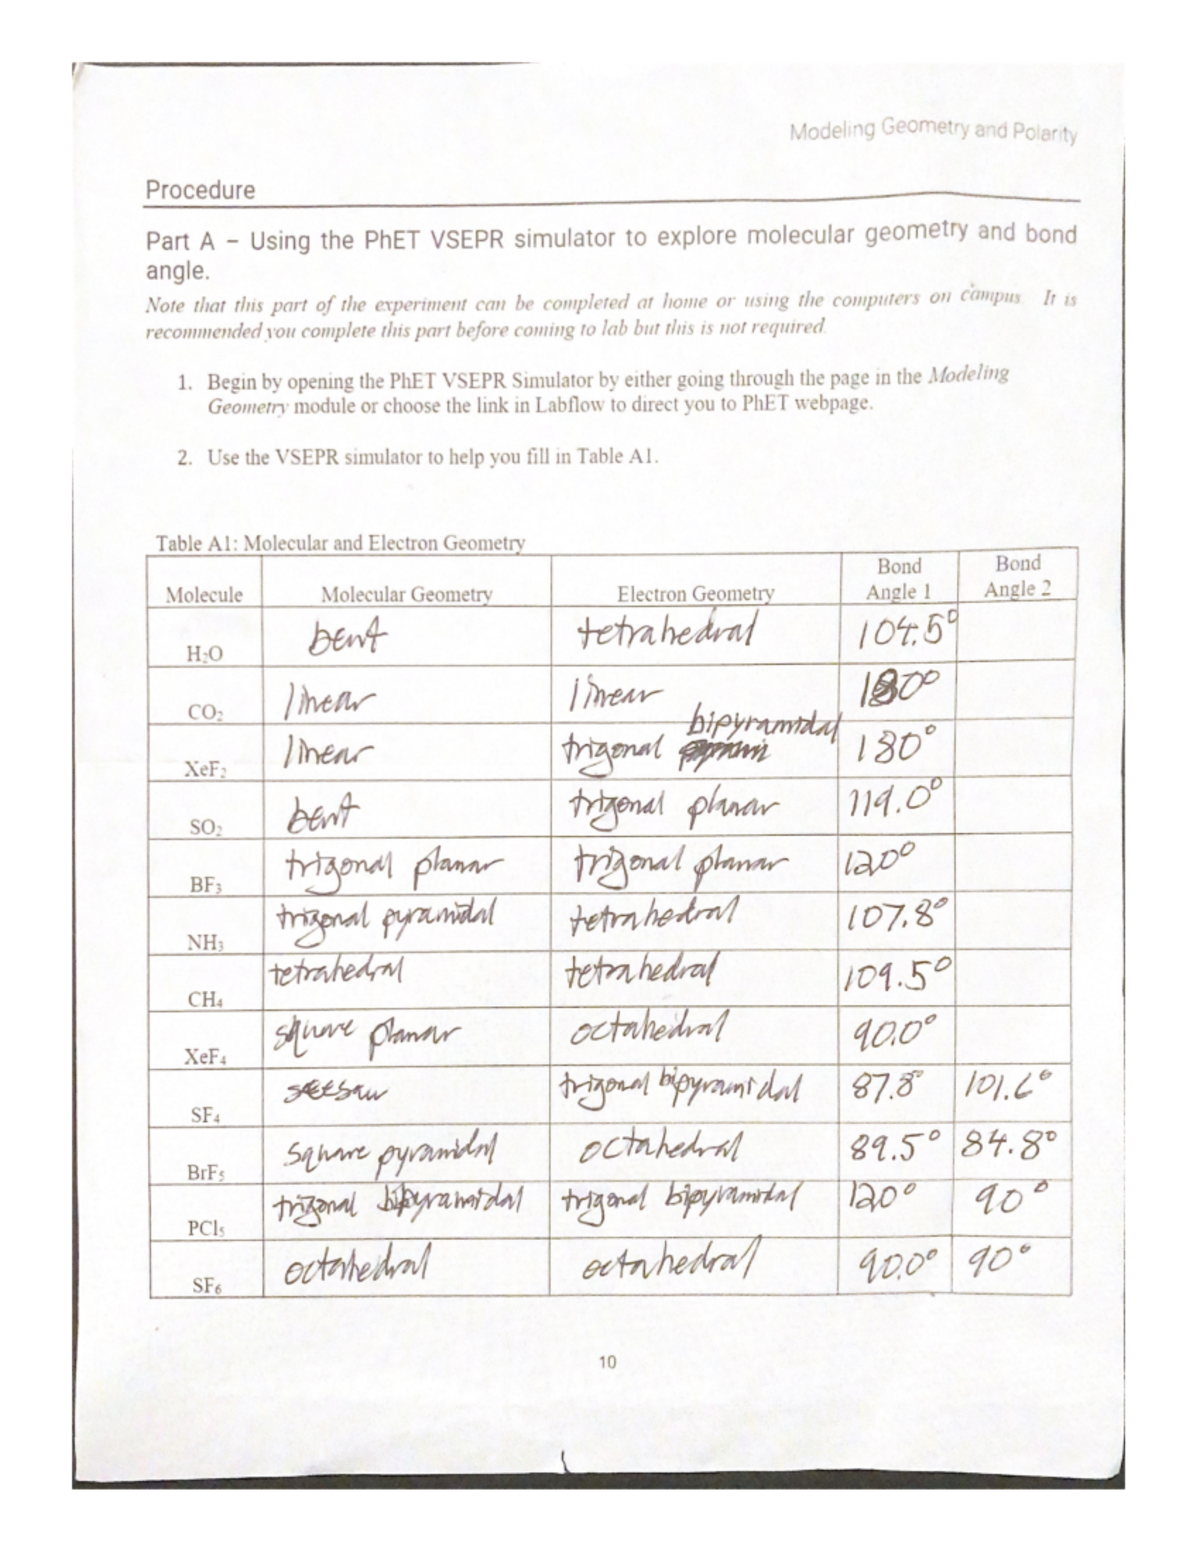 Modeling Geometry and Polarity
Procedure
Part A – Using the PhET VSEPR simulator to explore molecular geometry and bond
angle.
Note that this part of the experiment can be completed at home or using the computers on campus. It is
recommended you complete this part before coming to lab but this is not required.
1. Begin by opening the PhET VSEPR Simulator by either going through the page in the Modeling
Geometry module or choose the link in Labflow to direct you to PhET webpage.
2. Use the VSEPR simulator to help you fill in Table A1.
Table A1: Molecular and Electron Geometry
Molecule Molecular Geometry Electron Geometry Bond Angle 1 Bond Angle 2
H₂O bent tetrahedral 104.5°
CO₂ linear linear 180°
XeF₂ linear trigonal bipyramidal 180°
SO₂ bent trigonal planar 119.0°
BF₃ trigonal planar trigonal planar 120°
NH₃ trigonal pyramidal tetrahedral 107.8°
CH₄ tetrahedral tetrahedral 109.5°
XeF₄ square planar octahedral 90.0°
SF₄ seesaw trigonal bipyramidal 87.8° 101.6°
BrF₅ square pyramidal octahedral 89.5° 84.8°
PCl₅ trigonal bipyramidal trigonal bipyramidal 120° 90°
SF₆ octahedral octahedral 90.0° 90°
10